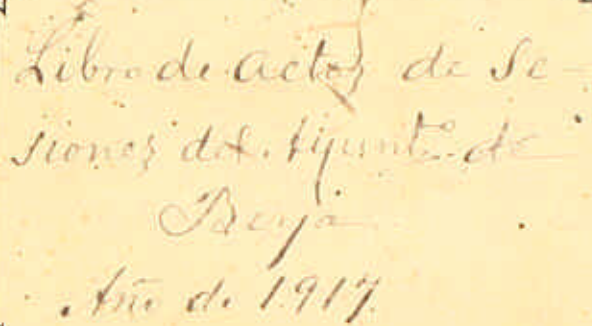 Libro de actas de Se-
siones del Ayunt.º de
Berja
Año de 1917.